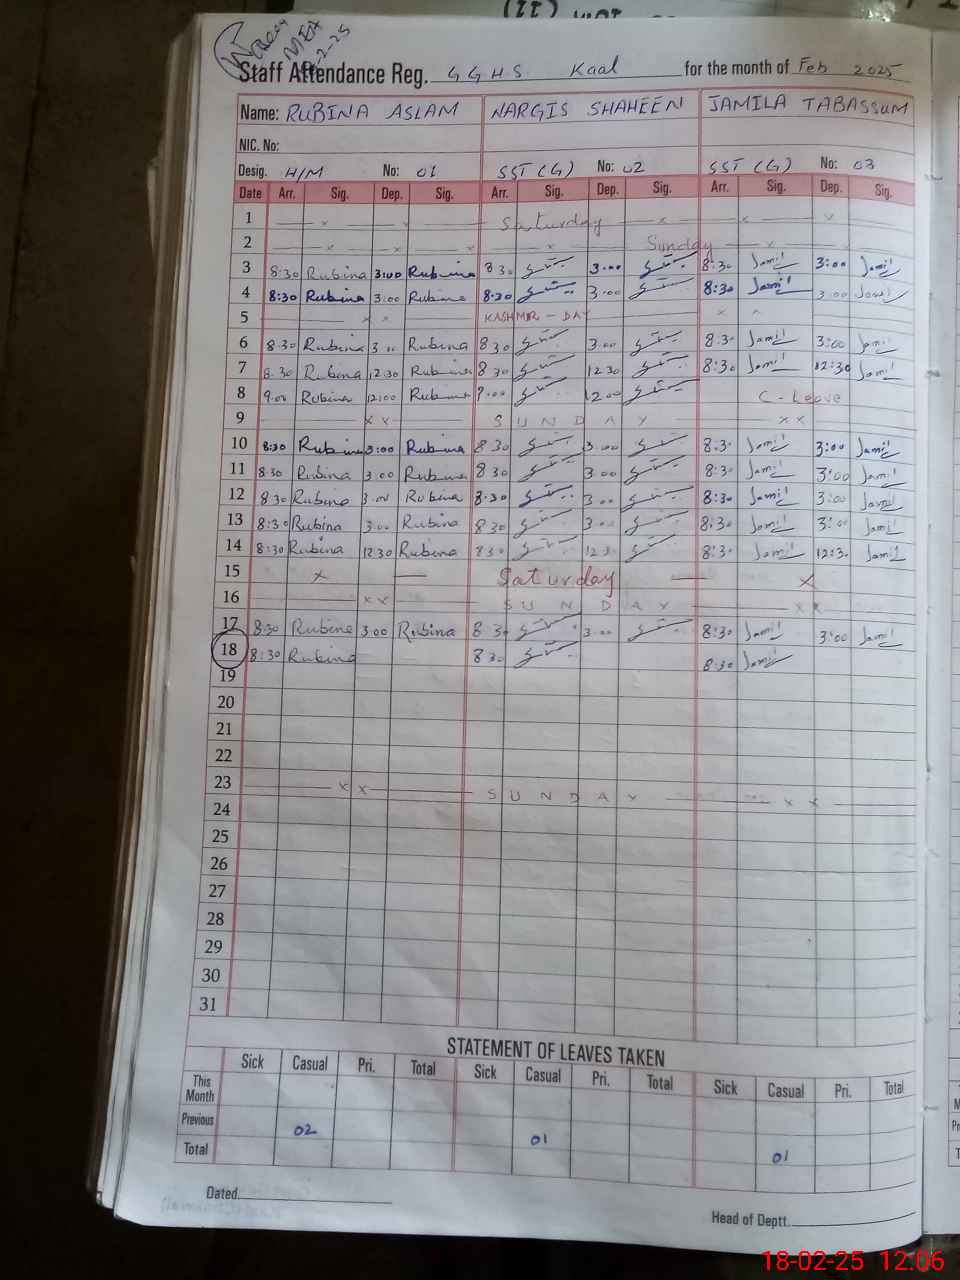 MEA
Staff Attendance Reg. GGHS Kaal for the month of Feb 2025
Name: RUBINA ASLAM NARGIS SHAHEEN JAMILA TABASSUM
NIC. No:
Desig. H/M No: 01 SST (G) No: 02 SST (G) No: 03
Date Arr. Sig. Dep. Sig. Arr. Sig. Dep. Sig. Arr. Sig. Dep. Sig.
1 Saturday
2 Sunday
3 8:30 Rubina 3:00 Rubina 8 30 3.00 8:30 Jamil 3:00 Jamil
4 8:30 Rubina 3:00 Rubina 8.30 3.00 8:30 Jamil 3:00 Jamil
5 x x KASHMIR - DAY x
6 8.30 Rubina 3.00 Rubina 8 30 3.00 8:30 Jamil 3:00 Jamil
7 8.30 Rubina 12.30 Rubina 8 30 12 30 8:30 Jamil 12:30 Jamil
8 9.00 Rubina 12:00 Rubina 9.00 12.00 C-Leave
9 x x SUNDAY x x
10 8:30 Rubina 3:00 Rubina 8 30 3.00 8:30 Jamil 3:00 Jamil
11 8.30 Rubina 3.00 Rubina 8 30 3.00 8:30 Jamil 3:00 Jamil
12 8 30 Rubina 3.00 Rubina 8.30 3.00 8:30 Jamil 3:00 Jamil
13 8:30 Rubina 3.00 Rubina 8 30 3.00 8:30 Jamil 3:00 Jamil
14 8:30 Rubina 12.30 Rubina 8 30 12 30 8:30 Jamil 12:30 Jamil
15 x Saturday x
16 x x SUNDAY x x
17 8:30 Rubina 3.00 Rubina 8 30 3.00 8:30 Jamil 3:00 Jamil
18 8:30 Rubina 8 30 8:30 Jamil
19
20
21
22
23 x x SUNDAY x x
24
25
26
27
28
29
30
31
STATEMENT OF LEAVES TAKEN
Sick Casual Pri. Total Sick Casual Pri. Total Sick Casual Pri. Total
This Month
Previous 02 01 01
Total
Dated
Head of Deptt.
18-02-25 12:06